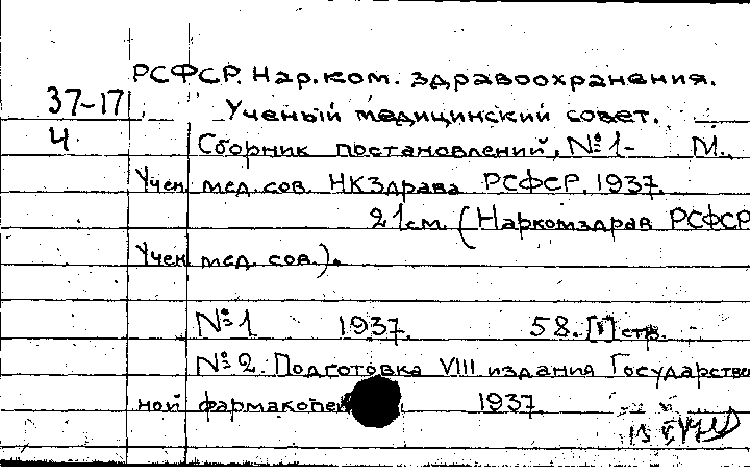 РСФСР. Нар.ком. здравоохранения.
37-17 Ученый медицинский совет.
4 Сборник постановлений, №1- М.
Учен. мед. сов. НКЗдрава РСФСР. 1937.
21см. (Наркомздрав РСФСР
Учен. мед. сов.).
№1 1937. 58.[1] стр.
№2. Подготовка VIII издания Государствен
ной фармакопеи 1937.